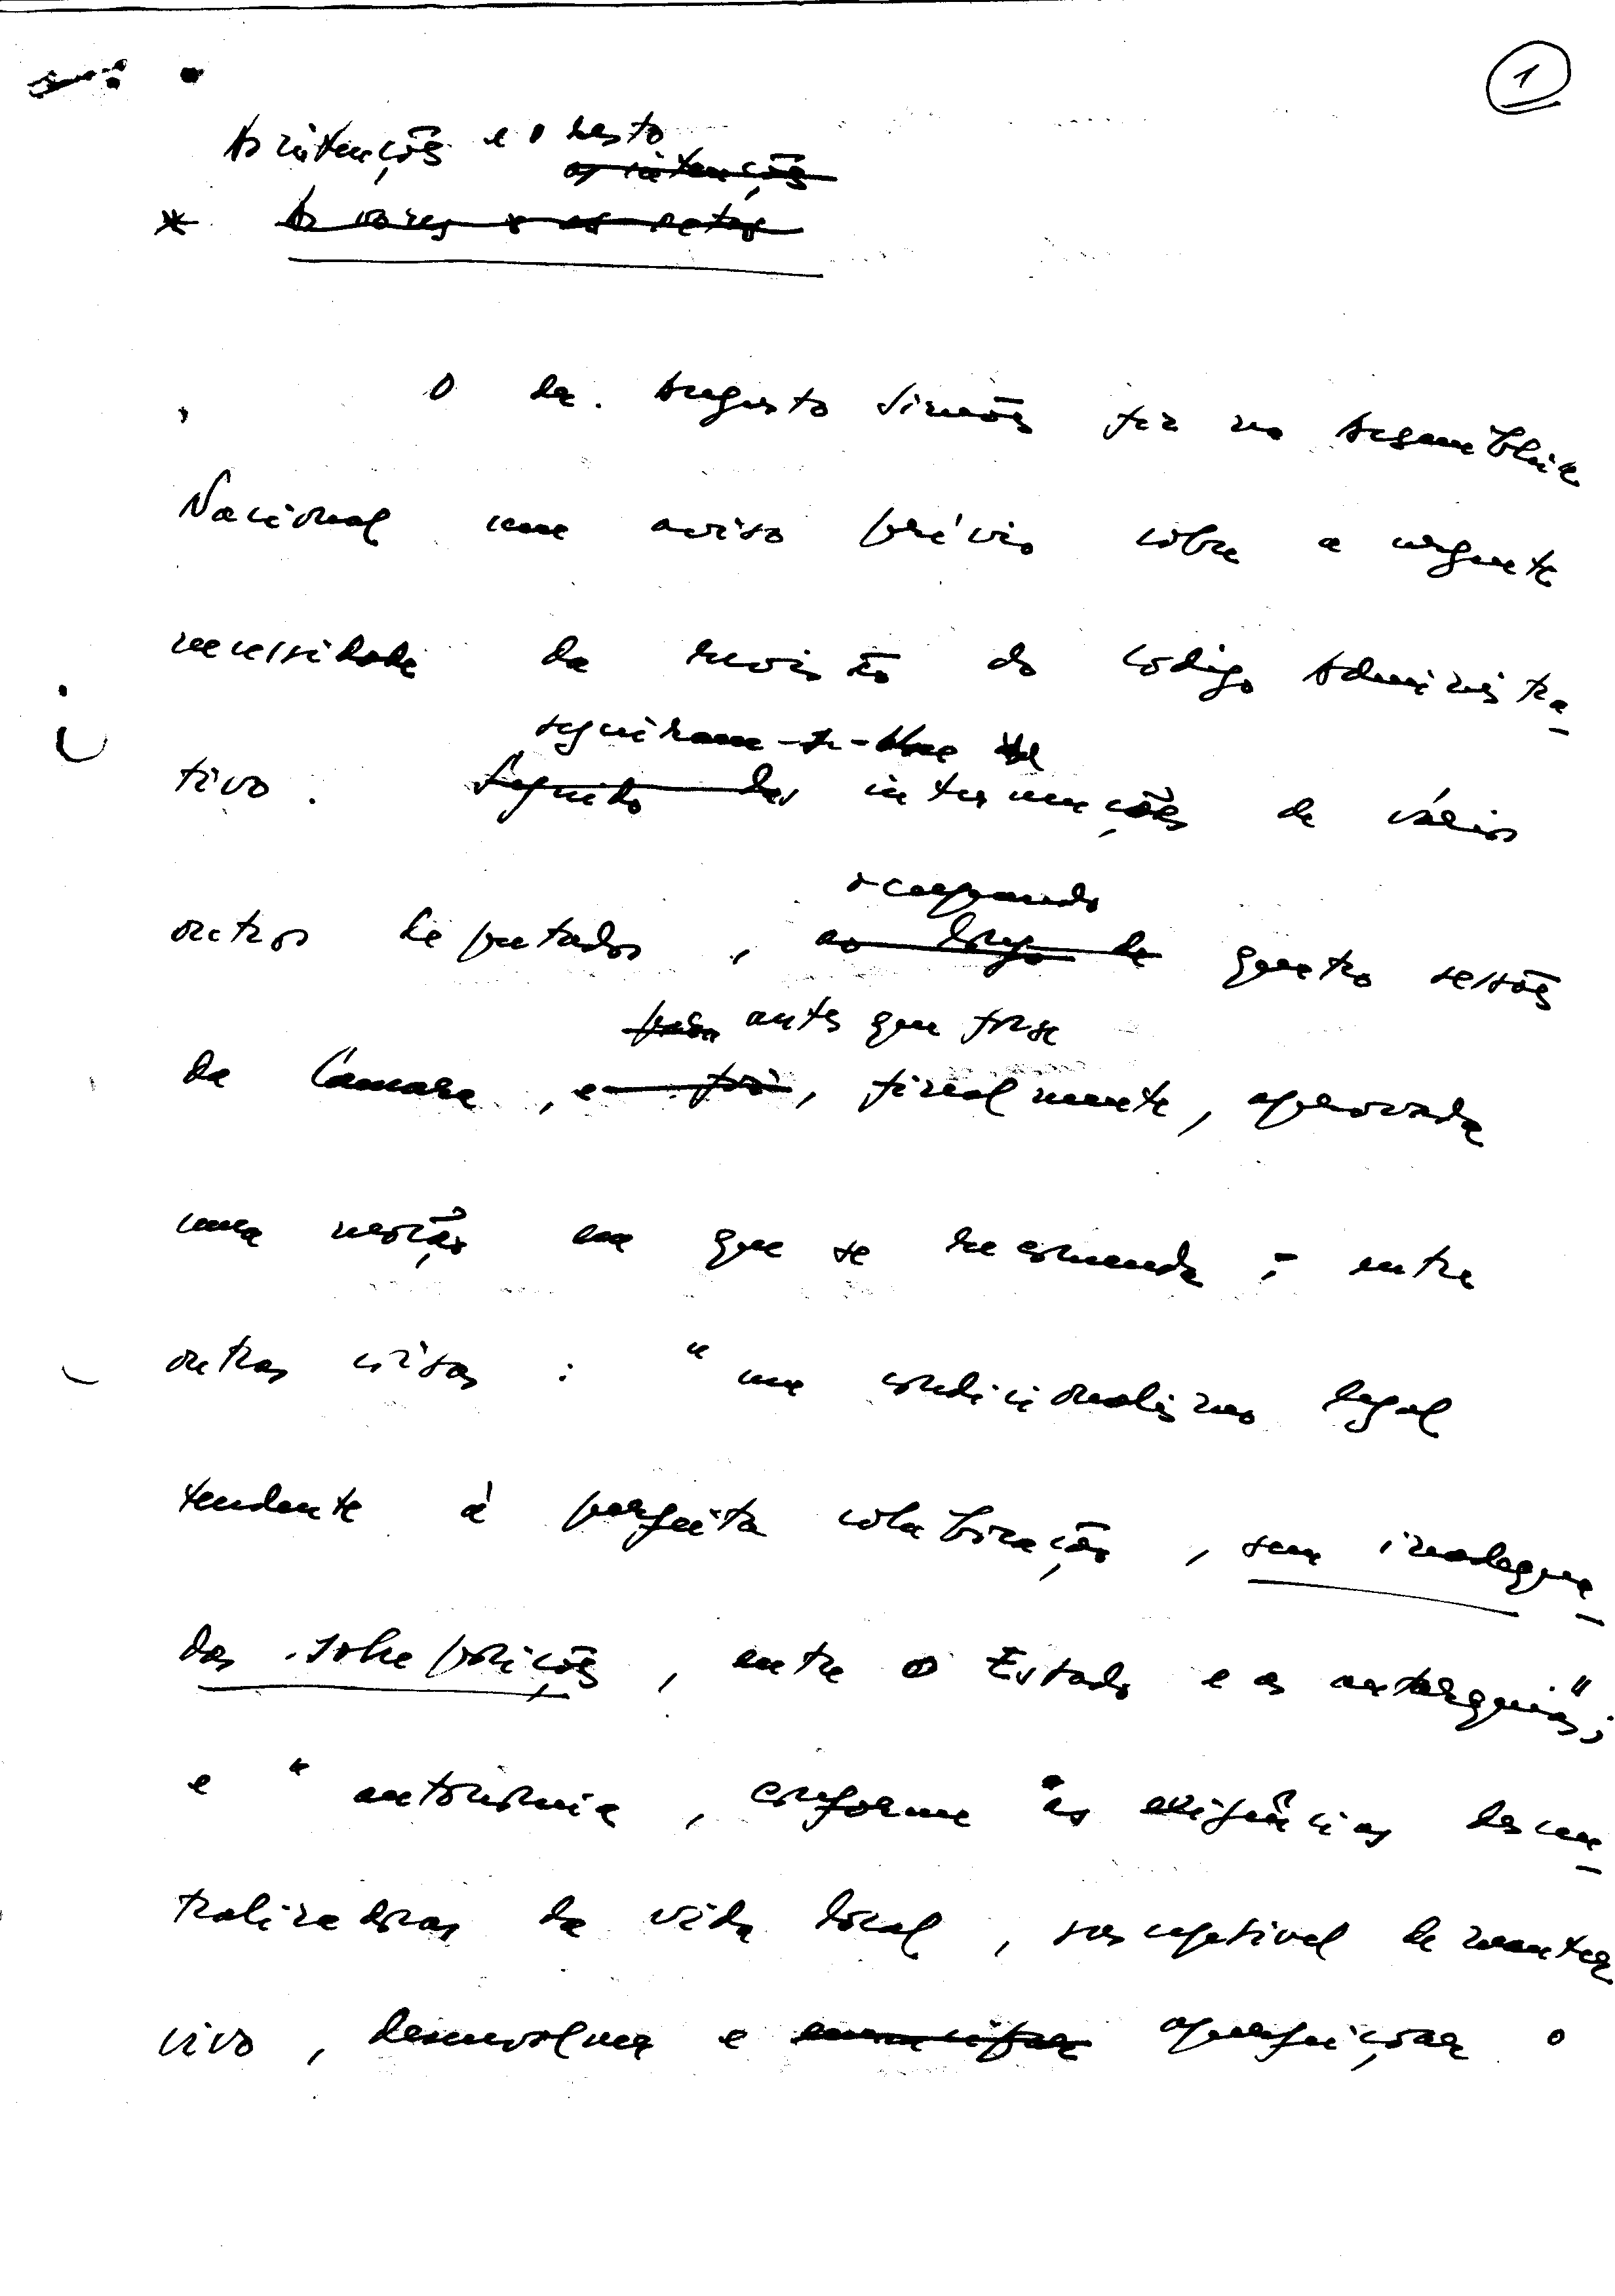 1
As intenções e o resto
as intenções
* As vozes e as
O dr. Augusto Simões fez na Assembleia
Nacional um aviso prévio sobre a urgente
necessidade da revisão do Codigo Administra-
tivo. Seguiram-se-lhe
Seguido das intervenções de vários
ocupando
outros deputados, ao longo de quatro sessões
antes que fosse
da Camara, e foi, finalmente, aprovada
uma moção em que se recomenda, entre
outras coisas: "um condicionalismo legal
tendente à perfeita colaboração, sem inadequa-
das sobreposições, entre o Estado e as autarquias";
e "autonomia, conforme as exigências descen-
tralizadoras da vida local, susceptivel de manter
vivo, desenvolver e aperfeiçoar o